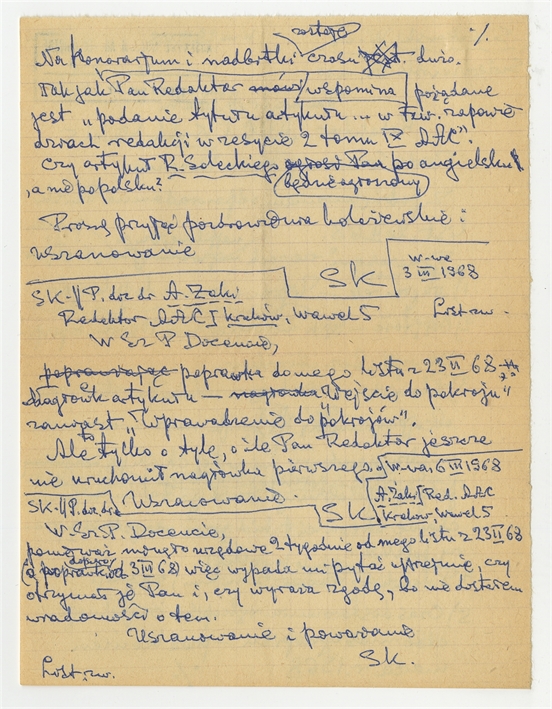 zostaje
·/.
Na honorarjum i nadbitki czasu jest dużo.
Tak jak Pan Redaktor mówi wspomina pożądane
jest „podanie tytułu artykułu ... w tzw. zapowie
dziach redakcji w zesycie 2 tomu IX AAC".
Czy artykuł R. Szleckiego ogłosi Pan po angielsku
, a nie po polsku?
będzie ogłoszony
Proszę przyjąć pozdrowienia koleżeńskie i
uszanowanie
SK
W-wa
3 III 1968
SK-// P. doc dr A. Żaki
Redaktor AAC Kraków, Wawel 5
List zw.
W Sz P Docencie,
poprawiając poprawka do mego listu z 23 II 68
Nagłówek artykułu — nagłówka „Wejście do pokroju"
zamiast „Wprowadzenie do pokrojów".
Ale to tylko o tyle, o ile Pan Redaktor jeszcze
nie uruchomił nagłówka pierwszego.
W-wa 6 III 1968
Uszanowanie.
SK
SK-// P. doc. dra
A. Żaki Red. AAC
Kraków, Wawel 5
W. Sz. P. Docencie,
ponieważ minęło urzędowe 2 tygodnie od mego listu z 23 II 68
(a poprawk. od 3 III 68) więc wypada mi pytać uprzejmie, czy
dopiero
otrzymał je Pan i, czy wyraża zgodę, bo nie dostałem
wiadomości o tem.
Uszanowanie i poważanie
SK.
List zw.